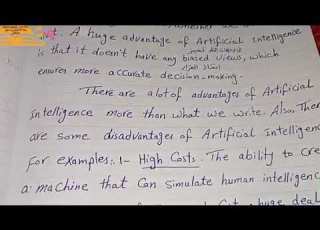 Not. A huge advantage of Artificial Intelligence
is that it doesn't have any biased views, which
ensures more accurate decision-making.
There are alot of advantages of Artificial
Intelligence more than what we write. Also, The
are some disadvantages of Artificial Intelligenc
For examples:. 1- High Costs. The ability to Cre
a machine that Can Simulate human intelligenc
huge deal